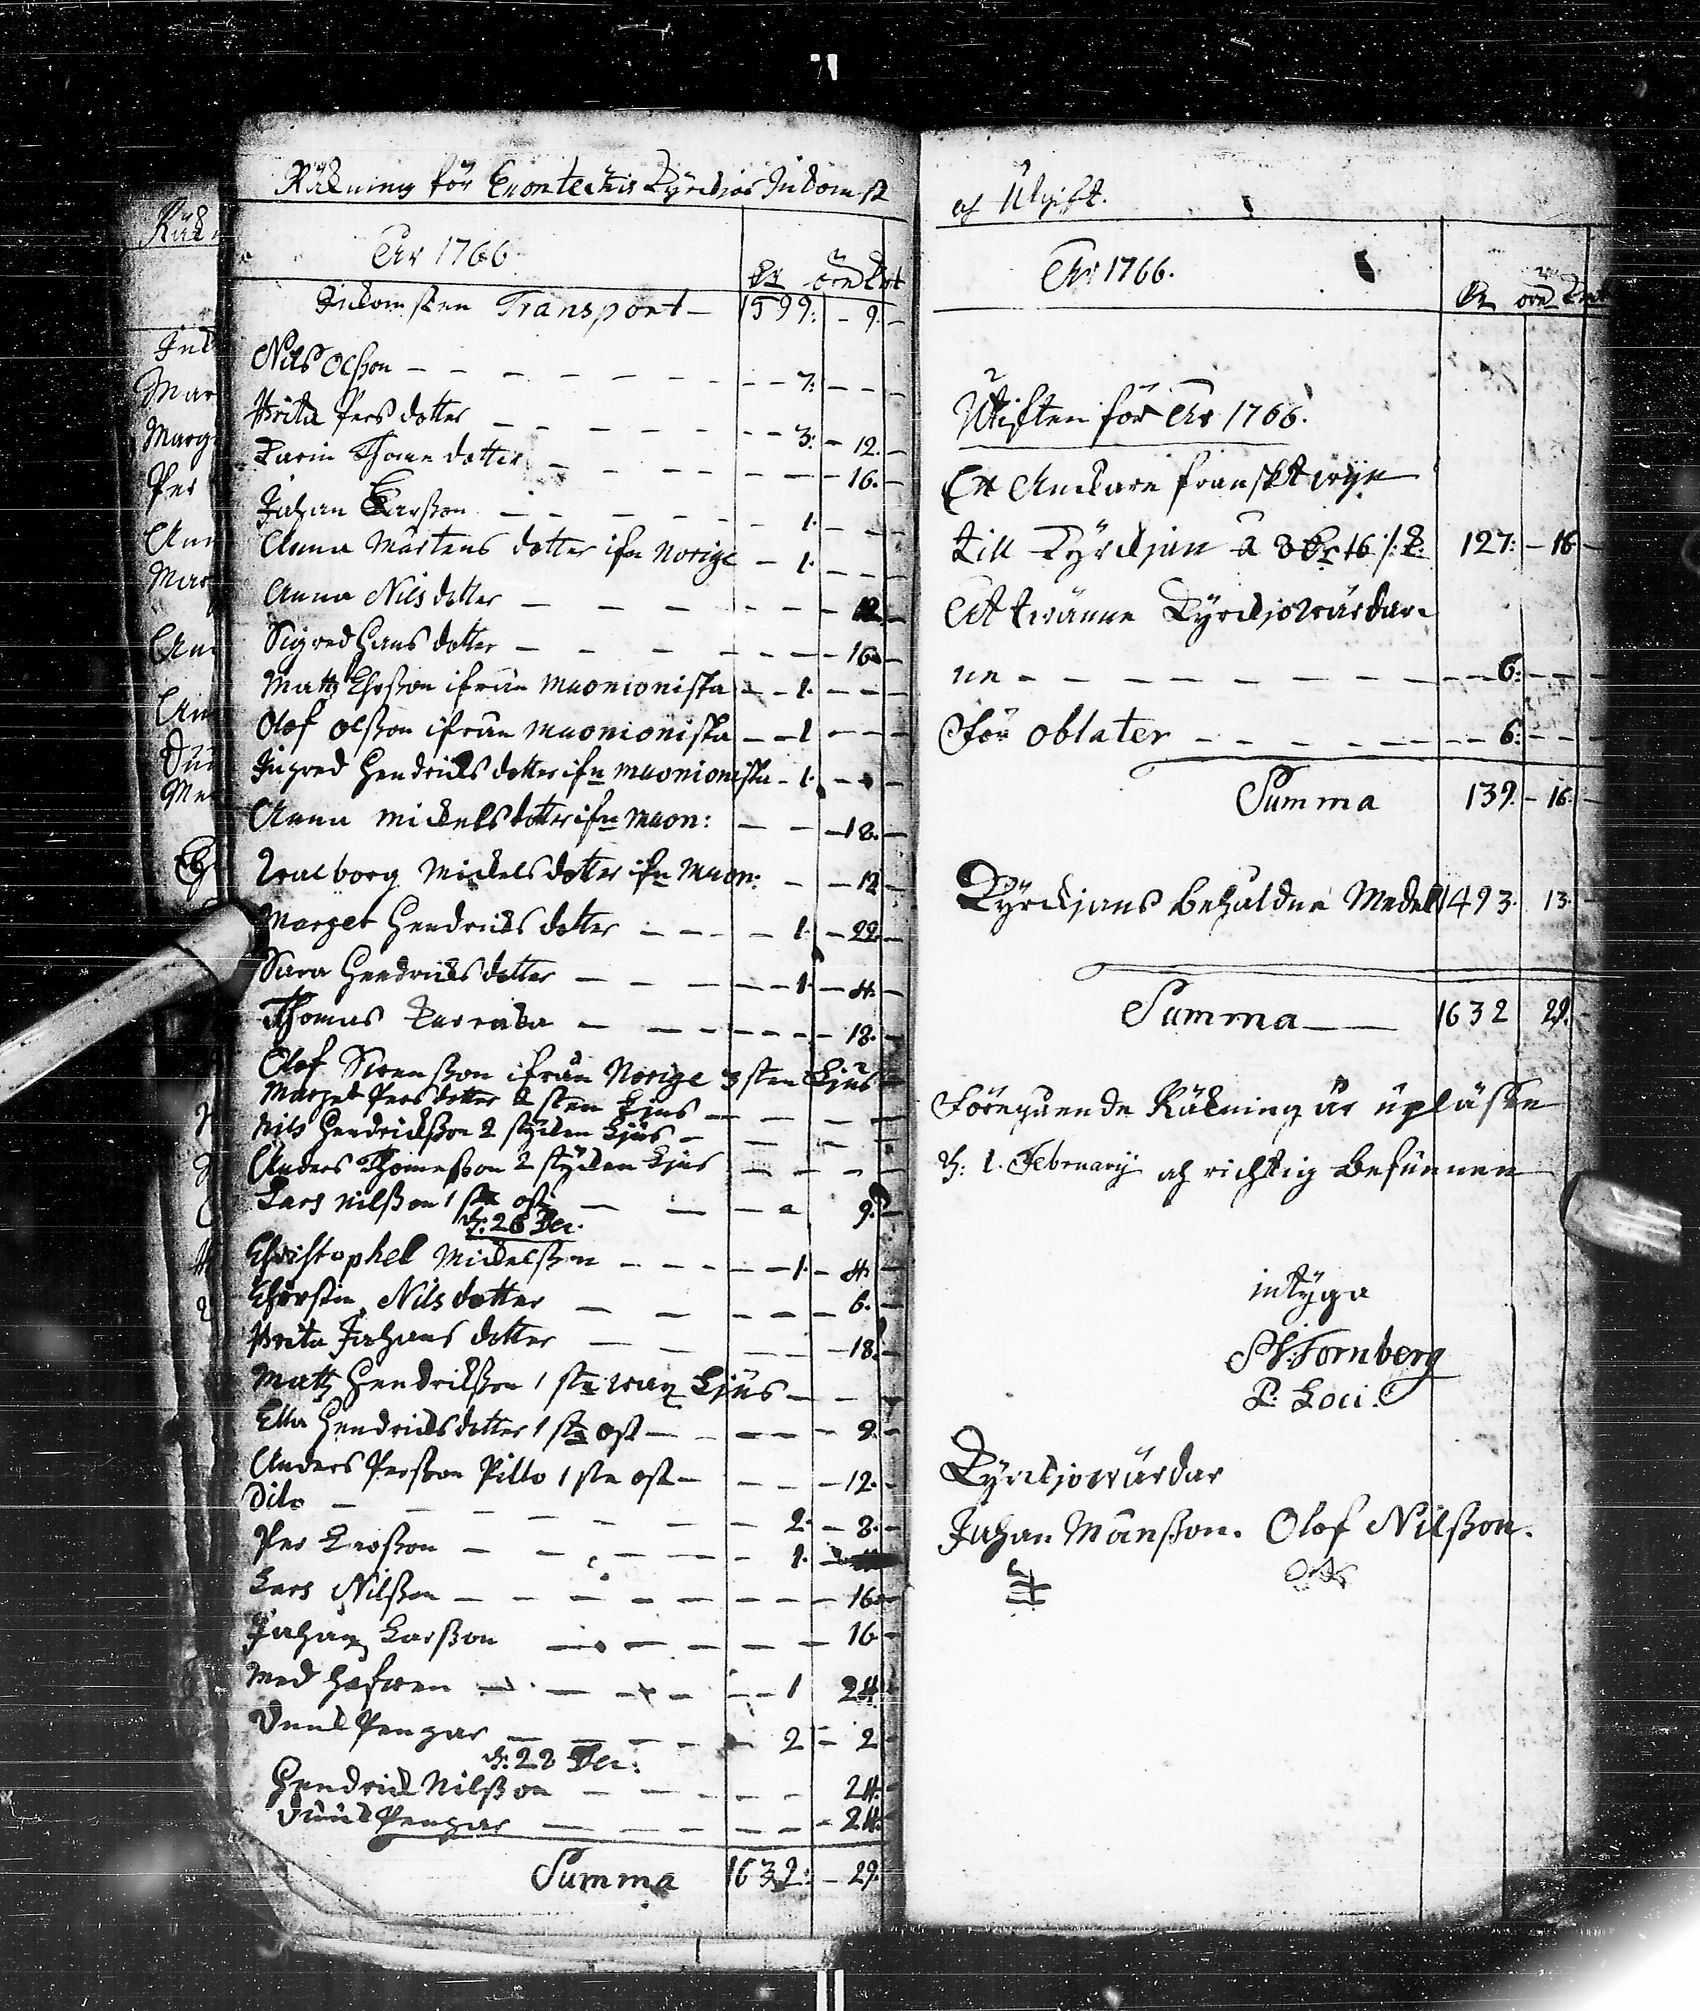 71
Räkning för Enontechis Kyrckjos Inkomst
År 1766
Dr öre kmt
Inkomsten Transport — 1599: 9.
Nils Olsson — 7:
Brita Pers dotter — 3: 12.
Karin Thome dotter — 16.
Johan Larsson — 1.
Anna Mårtens dotter ifn Norige — 1.
Anna Nils dotter — 12
Sigred Hans dotter — 16
Matts Ersson ifrån Muonioniska — 1.
Olof Olsson ifrån Muonioniska — 1
Ingred Hendricks dotter ifn Muonioniska — 1.
Anna Mickels dotter ifn Muon: — 18.
Walborg Mickels dotter ifn Muon: — 12
Marget Hendricks dotter — 1. 22.
Sara Hendricks dotter — 1. 4.
Thomas — 18.
Olof Swensson ifrån Norige 3 sten Ljus
Marget Pers dotter 2 sten Ljus —
Nils Hendricksson 2 stycken Ljus —
Anders Thomesson 2 stycken Ljus
Lars Nilsson 1 st ost — 9.
d: 26 Dec.
Christophel Mickelsson — 1. 4.
Chirstin Nils dotter — 6.
Brita Johans dotter — 18.
Matts Hendricksson 1 st wax Ljus —
Ella Hendricks dotter 1 st ost — 9.
Anders Persson Pilto 1 st ost — 12.
Dito — 2. 8.
Per Larsson — 1.
Lars Nilsson — 16.
Johan Larsson — 16
Med Håfwen — 1 24
Pengar — 2 2
d: 28 Dec:
Hendrick Nilsson — 24.
Pengar — 24.
Summa 1632: 29.
och Utgift.
År 1766.
Dr öre kmt
Utgiften för År 1766.
Ett Anckare franskt wijn
till Kyrckjan â 127: 16
Åt twänne Kyrckjowärdar
ne — 6:
För oblater — 6:
Summa 139. 16.
Kyrckjans behåldne Medel 1493. 13.
Summa — 1632 29.
Föregående Räkning är upläsen
d: 1. February och richtig befunnen
intyga
Fornberg
P. Loci.
Kyrckjowärdar
Johan Månsson. Olof Nilsson.